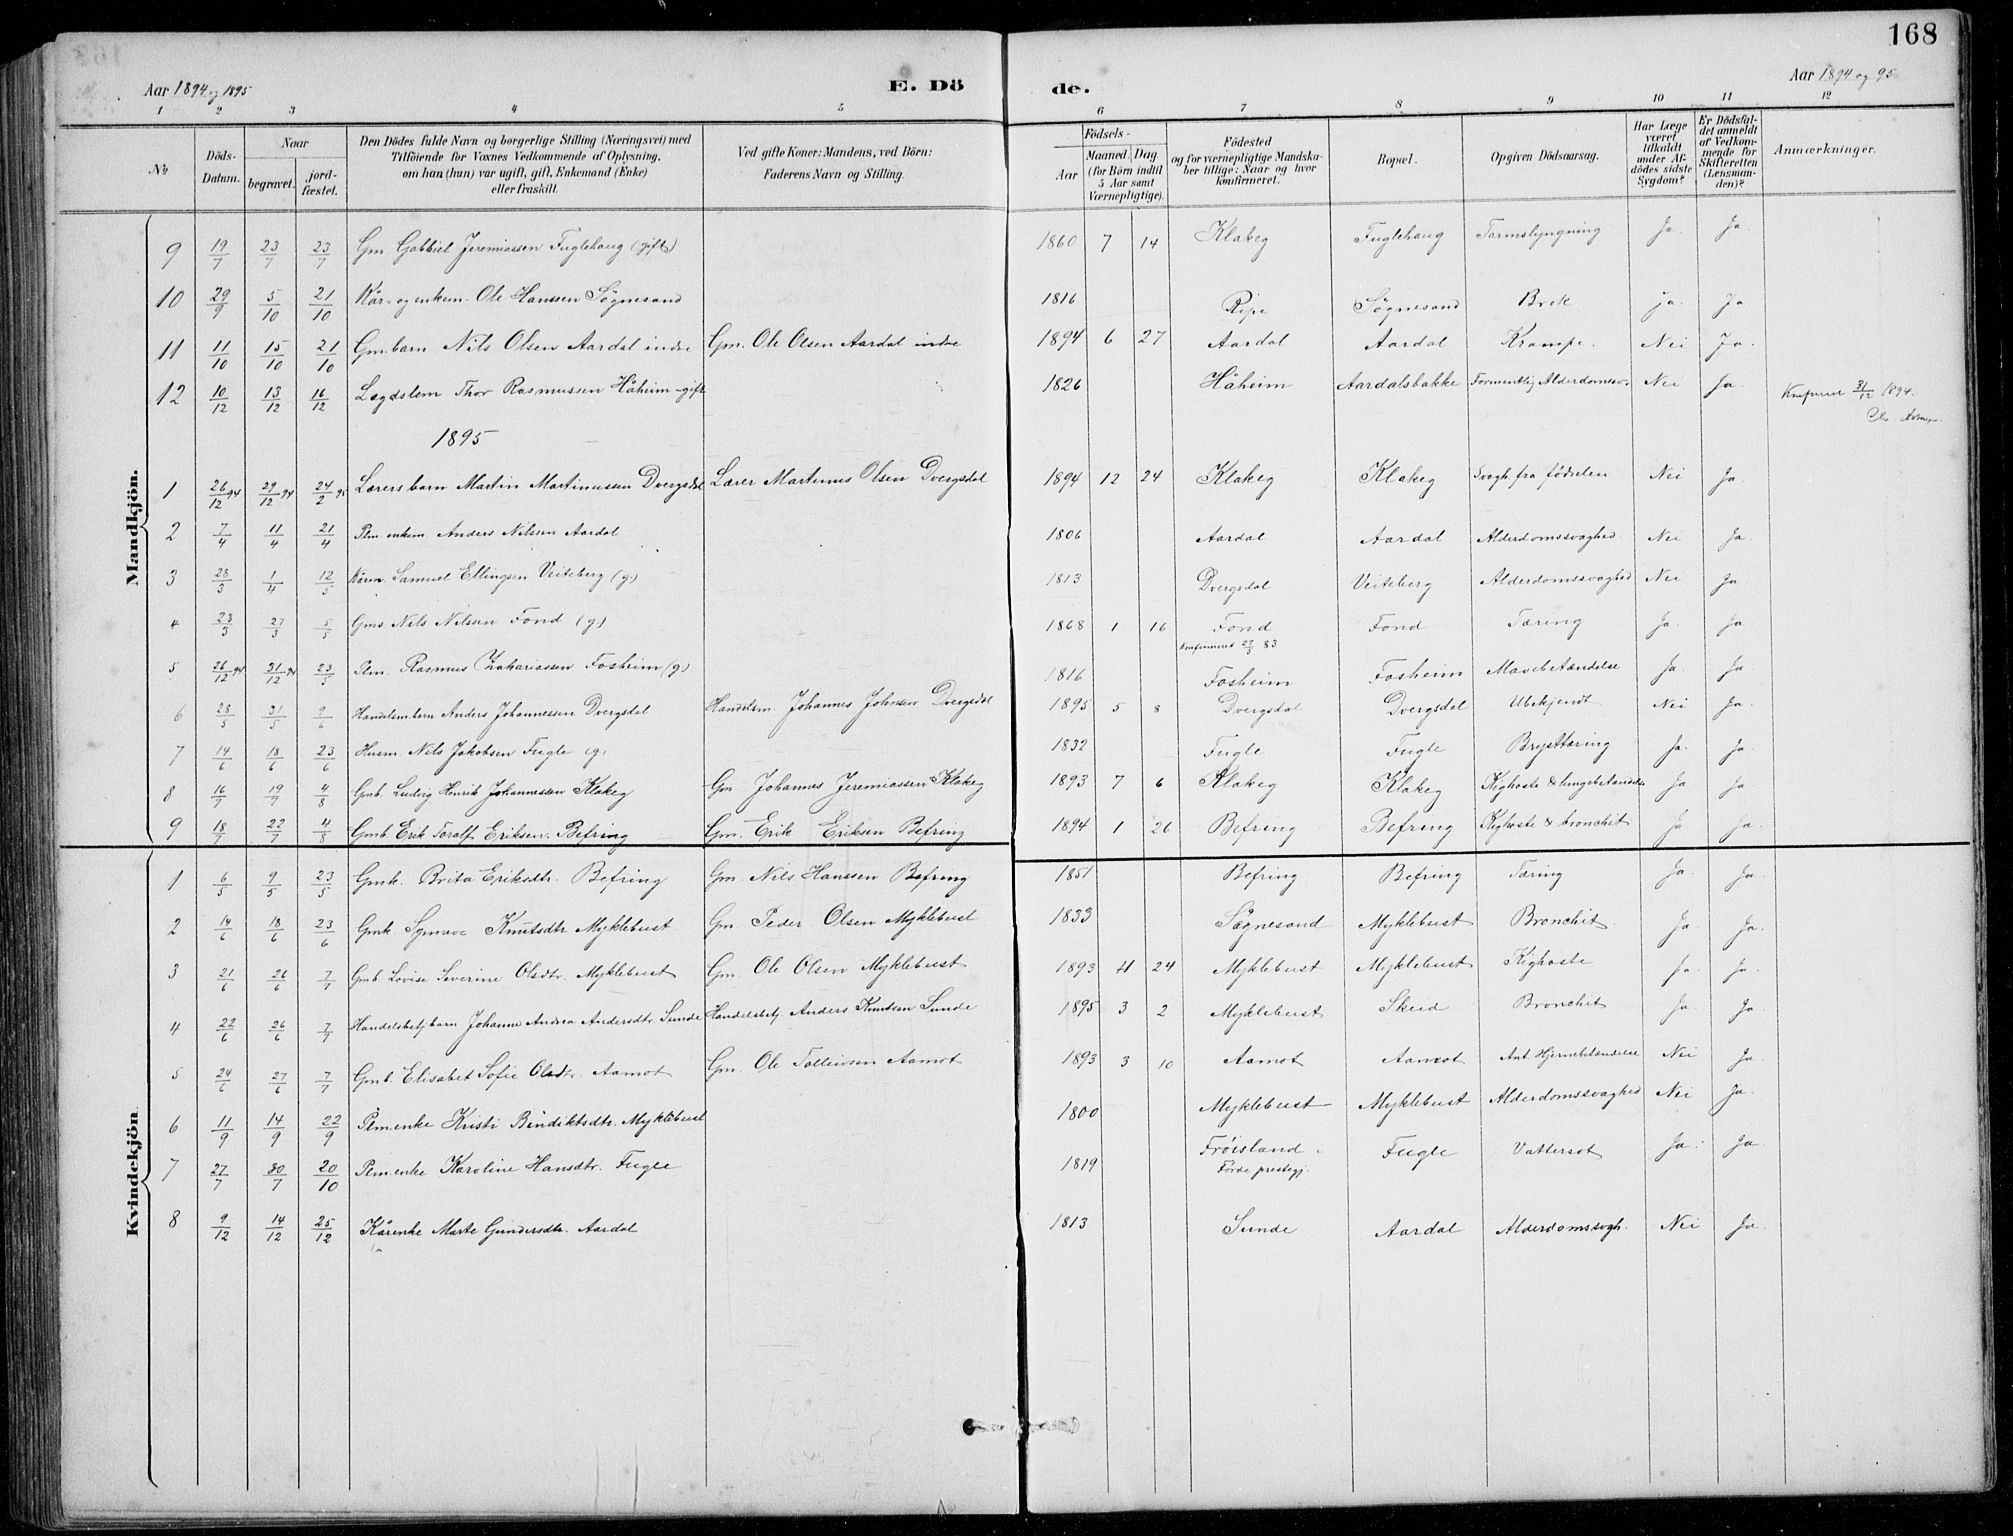 168
Aar 1894 og 1895
E. Dö
de.
Aar 1894 og 95
1 2 3 4 5 6 7 8 9 10 11 12
No
Döds-Datum.
Naar
begravet.
jord-fæstet.
Den Dödes fulde Navn og borgerlige Stilling (Næringsvei) med
Tilföiende for Voxnes Vedkommende af Oplysning,
om han (hun) var ugift, gift, Enkemand (Enke)
eller fraskilt.
Ved gifte Koner: Mandens, ved Börn:
Faderens Navn og Stilling.
Födsels-
Aar
Maaned. Dag
(for Børn indtil
5 Aar samt
Værnepligtige).
Födested
og for værnepligtige Mandska-
ber tillige: Naar og hvor
konfirmeret.
Bopæl.
Opgiven Dödsaarsag.
Har Læge
været
tilkaldt
under Af-
dödes sidste
Sygdom?
Er Dödsfal-
det anmeldt
af Vedkom-
mende for
Skifteretten
(Lensman-
den)?
Anmærkninger.
Mandkjön.
9 19/7 23/7 23/7 Gm. Gabriel Jeremiassen Fuglehaug (gift) 1860 7 14 Klakeg Fuglehaug Tarmslyngning Ja. Ja.
10 29/9 5/10 21/10 Kår- og enkem. Ole Hanssen Søgnesand 1816 Ripe Søgnesand Brok ja. Ja
11 11/10 15/10 21/10 Gm.barn Nils Olsen Aardal indre Gm. Ole Olsen Aardal indre 1894 6 27 Aardal Aardal Krampe. Nei Ja.
12 10/12 13/12 16/12 Lægdslem Thor Rasmussen Håheim - gift 1826 Håheim Aardalsbakke Formentlig Alderdomssv. Nei Ja. 31/12 1894.
1895
1 26/12 94 29/12 94 24/2 95 Lærersbarn Martin Martinussen Dvergsdal Lærer Martinus Olsen Dvergsdal 1894 12 24 Klakeg Klakeg Svagh. fra fødselen Nei Ja.
2 7/4 11/4 21/4 Plm. enkem Anders Nilsen Aardal 1806 Aardal Aardal Alderdomssvaghed. Nei Ja.
3 28/3 1/4 12/5 Kårm. Samuel Ellingsen Veiteberg (g) 1813 Dvergsdal Veiteberg Alderdomssvaghed Nei Ja
4 23/3 27/3 5/5 Gms Nils Nilsen Fond (g) 1868 1 16 Fond Fond Tæring Ja. Ja.
konfirmeret 27/5 83
5 26/12 94 31/12 94 23/5 Plm. Rasmus Zakariassen Fosheim (g.) 1816 Fosheim Fosheim Mavebetændelse Ja. Ja
6 28/5 31/5 9/6 Handelsm.barn Anders Johannessen Dvergsdal Handelsm. Johannes Johnsen Dvergsdal 1895 5 8 Dvergsdal Dvergsdal Ubekjendt Nei Ja.
7 14/6 18/6 23/6 Husm. Nils Jakobsen Fugle (g) 1832 Fugle Fugle Brysttæring Ja. Ja
8 16/7 19/7 4/8 Gmb. Ludvig Henrik Johannessen Klakeg Gm. Johannes Jeremiassen Klakeg 1893 7 6 Klakeg Klakeg Kighoste & lungebetændelse Ja Ja
9 18/7 22/7 4/8 Gmb Erik Toralf Eriksen. Befring Gm. Erik Eriksen Befring 1894 1 26 Befring Befring Kighoste & bronchit Ja Ja.
Kvindekjön
1 6/5 9/5 23/5 Gmk. Brita Eriksdtr. Befring Gm. Nils Hanssen Befring 1851 Befring Befring Tæring Ja. Ja.
2 14/6 18/6 23/6 Gmk. Synneve Knutsdtr Myklebust Gm. Peder Olsen Myklebust 1833 Søgnesand Myklebust Bronchit. Ja. Ja.
3 21/6 26/6 7/7 Gmb Lovise Severine Olsdtr. Myklebust Gm. Ole Olsen Myklebust 1893 11 24 Myklebust Myklebust Kighoste Ja. Ja.
4 22/6 26/6 7/7 Handelsbetj.barn Johanne Andrea Andersdtr. Sunde Handelsbetj. Anders Knutsen Sunde 1895 3 2 Myklebust Skeid Bronchit Ja. Ja.
5 24/6 27/6 7/7 Gmb. Elisabet Sofie Olsdtr. Aamot Gm. Ole Tolleivsen Aamot 1893 3 10 Aamot Aamot Ant. Hjernebetændelse Nei Ja.
6 11/9 14/9 22/9 Plm.enke Kristi Bendiktsdtr. Myklebust 1800 Myklebust Myklebust Alderdomssvaghed Nei Ja.
7 27/7 30/7 20/10 Plm.enke Karoline Hansdtr. Fugle 1819 Frøisland i Fugle Vattersot Ja. Ja.
Førde prestegj.
8 9/12 14/12 25/12 Kårenke Marte Gundersdtr. Aardal 1813 Sunde Aardal Alderdomssvgh. Nei Ja.